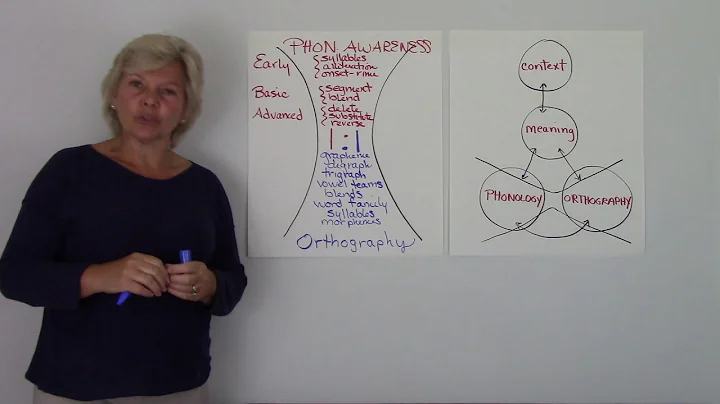 PHON. AWARENESS
Early
syllables
alliteration
onset-rime
Basic
segment
blend
Advanced
delete
substitute
reverse
1:1
grapheme
digraph
trigraph
vowel teams
blends
word family
syllables
morphemes
Orthography
context
meaning
PHONOLOGY
ORTHOGRAPHY